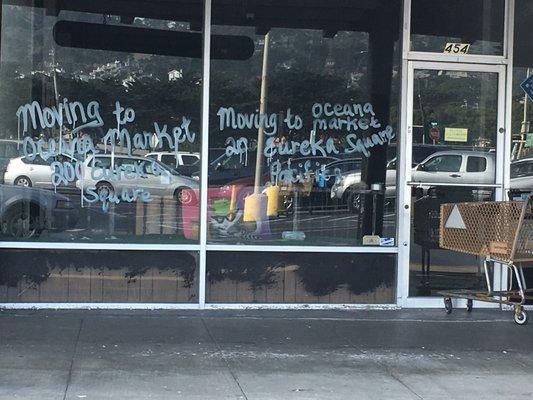 454
Moving to
Oceana Markpt
200 Eureka
Square
Moving to Oceana
market
Eureka Square
Pacific